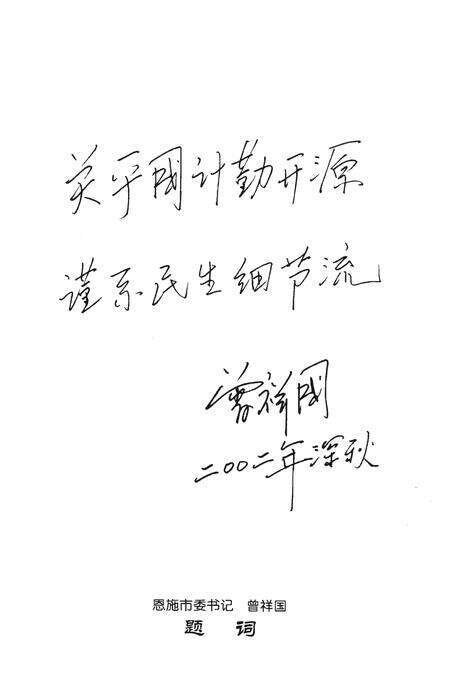 关乎國计勤开源
谨系民生细节流
曾祥國
二00二年深秋
恩施市委书记 曾祥国
题 词